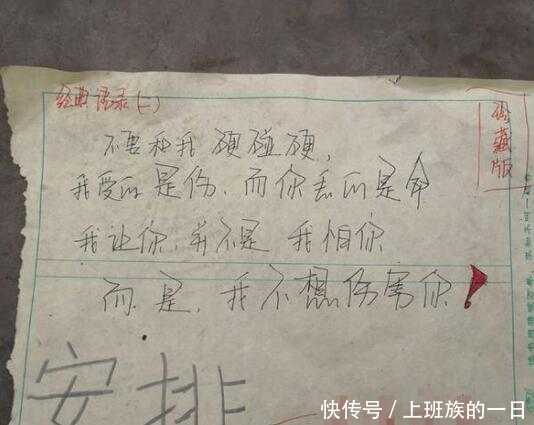 经典语录(二)
珍藏版
不要和我硬碰硬,
我受的是伤.而你丢的是命
我让你.并不是 我怕你
而是,我不想伤害你!
安排
快传号/上班族的一日